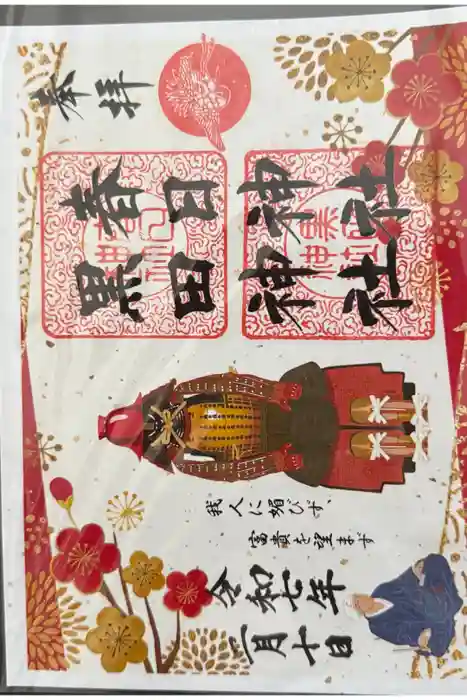 奉拝
春日神社
黒田神社
我人に媚びず、
富貴を望まず
令和七年
一月十日